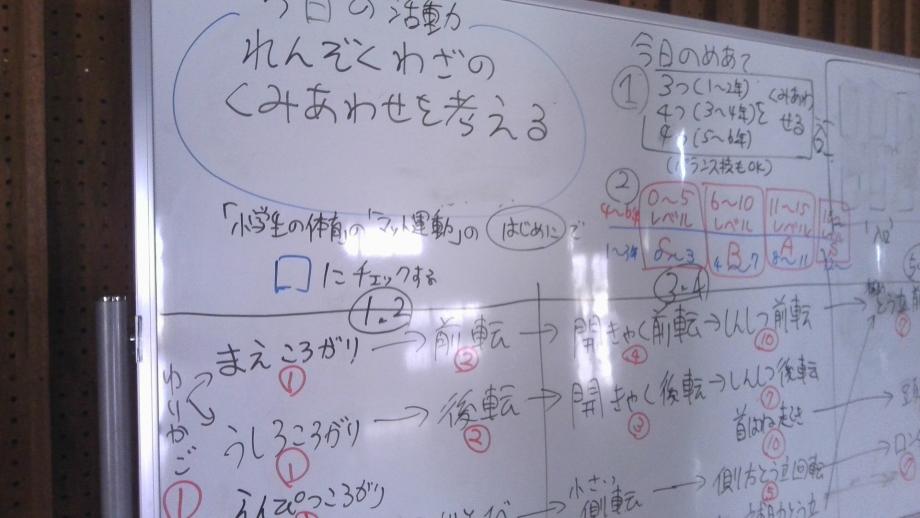 今日の活動
れんぞくわざの
くみあわせを考える
「小学生の体育」の「マット運動」の はじめに で
□にチェックする
今日のめあて
① 3つ(1〜2年) くみあわ
4つ(3〜4年)を せる
4つ(5〜6年)
(バランス技もOK)
②
4〜6年 0〜5 レベル 6〜10 レベル 11〜15 レベル
1〜3年 0〜3 4 B 7 8 A 11
1.2
3.4
まえころがり → 前転 → 開きゃく前転 → しんしつ前転 →
① ② ④ ⑩
ゆりかご
①
うしろころがり → 後転 → 開きゃく後転 → しんしつ後転
① ② ③ ⑦
首はね起き
⑩
えんぴつころがり
小さい側転 → 側方とう立回転
⑤